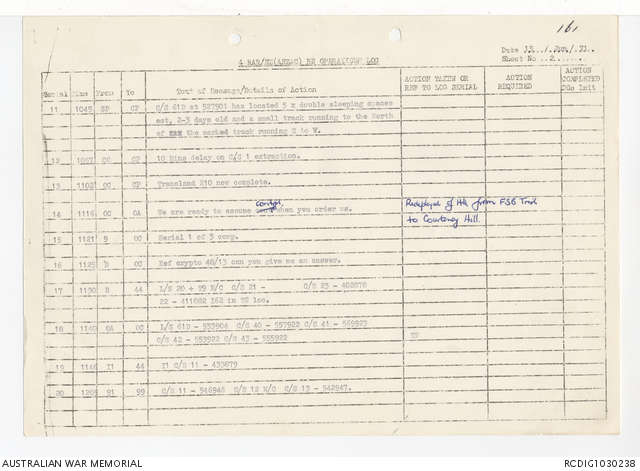 161
4 RAR/NZ(ANZAC) BN OPERATIONS LOG
Sheet No ..2......
Serial Time From To Text of Message/Details of Action ACTION TAKEN OR REF TO LOG SERIAL ACTION REQUIRED ACTION COMPLETED
11 1045 CP C/S 61D at 527901 has located 5 x double sleeping spaces
est, 2-3 days old and a small track running to the North
of the marked track running E to W.
12 1057 10 Mins delay on C/S 1 extraction.
13 1102 Transland 210 now complete.
14 1116 We are ready to assume control when you order us. Redeployed of HQ from FSB Trish
to Courtenay Hill.
15 1121 9 Serial 1 of 3 comp.
16 1125 Ref crypto 48/13 can you give me an answer.
17 1130 44 L/S 20 + 39 N/C C/S 21 - C/S 23 - 408878
22 - 411882 in loc.
18 1140 L/S 61D - 533904 C/S 40 - 557922 C/S 41 - 569923
C/S 42 - 553922 C/S 43 - 555922
19 1146 44 I1 C/S 11 - 430879
20 91 99 C/S 11 - 546948 C/S 12 N/C C/S 13 - 542947.
AUSTRALIAN WAR MEMORIAL
RCDIG1030238